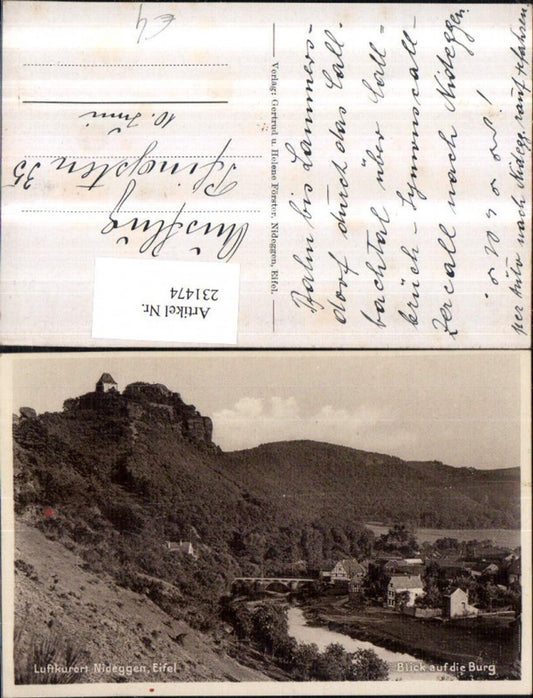 €4
Ausflug
Pfingsten 35
10. Juni
Artikel Nr.
231474
Verlag: Gertrud u. Helene Förster, Nideggen, Eifel.
Bahn bis Lammers-
dorf durch das Call-
bachtal über Call-
brück - Symonscall -
Zercall nach Nideggen.
per
nach Nidegg. rauf
Luftkurort Nideggen, Eifel
Blick auf die Burg